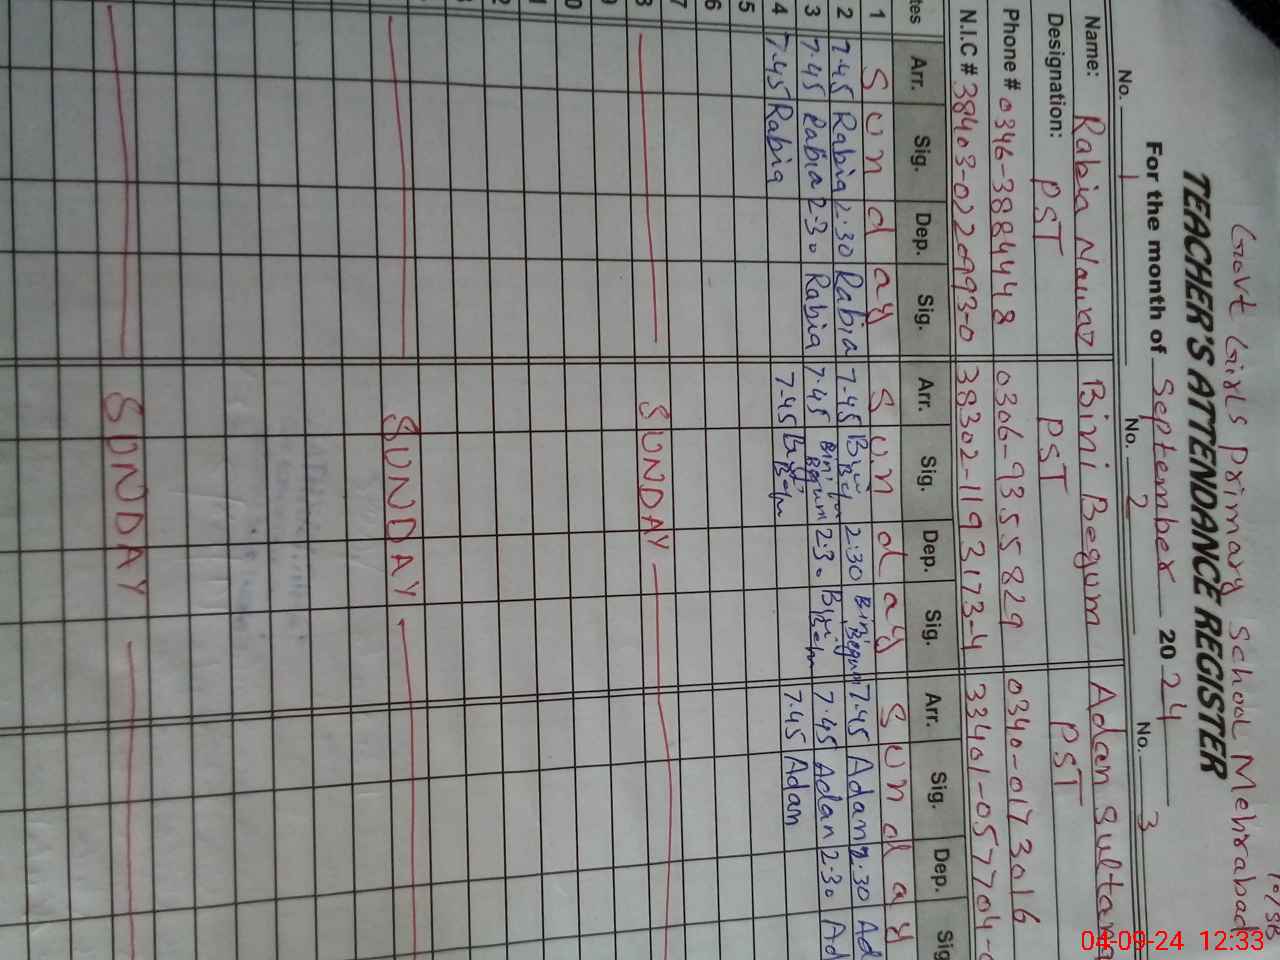 Govt Girls Primary School Mehrabad
TEACHER'S ATTENDANCE REGISTER
For the month of September 2024
No. 1 No. 2 No. 3
Name: Rabia Bini Begum Adan Sultan
Designation: PST PST PST
Phone # 0346-3884448 0306-9355829 0340-0173016
N.I.C # 38403-0220993-0 38302-1193173-4 33401-057704-
Arr. Sig. Dep. Sig. Arr. Sig. Dep. Sig. Arr. Sig. Dep. Sig
1 Sunday Sunday Sunday
2 7.45 Rabia 2.30 Rabia 7.45 2.30 Bini Begum 7.45 Adan 2.30 Ad
3 7.45 Rabia 2.30 Rabia 7.45 Bini Begum 2.30 7.45 Adan 2.30 Ad
4 7.45 Rabia 7.45 7.45 Adan
5
6
7
8 SUNDAY
SUNDAY
SUNDAY
04-09-24 12:33